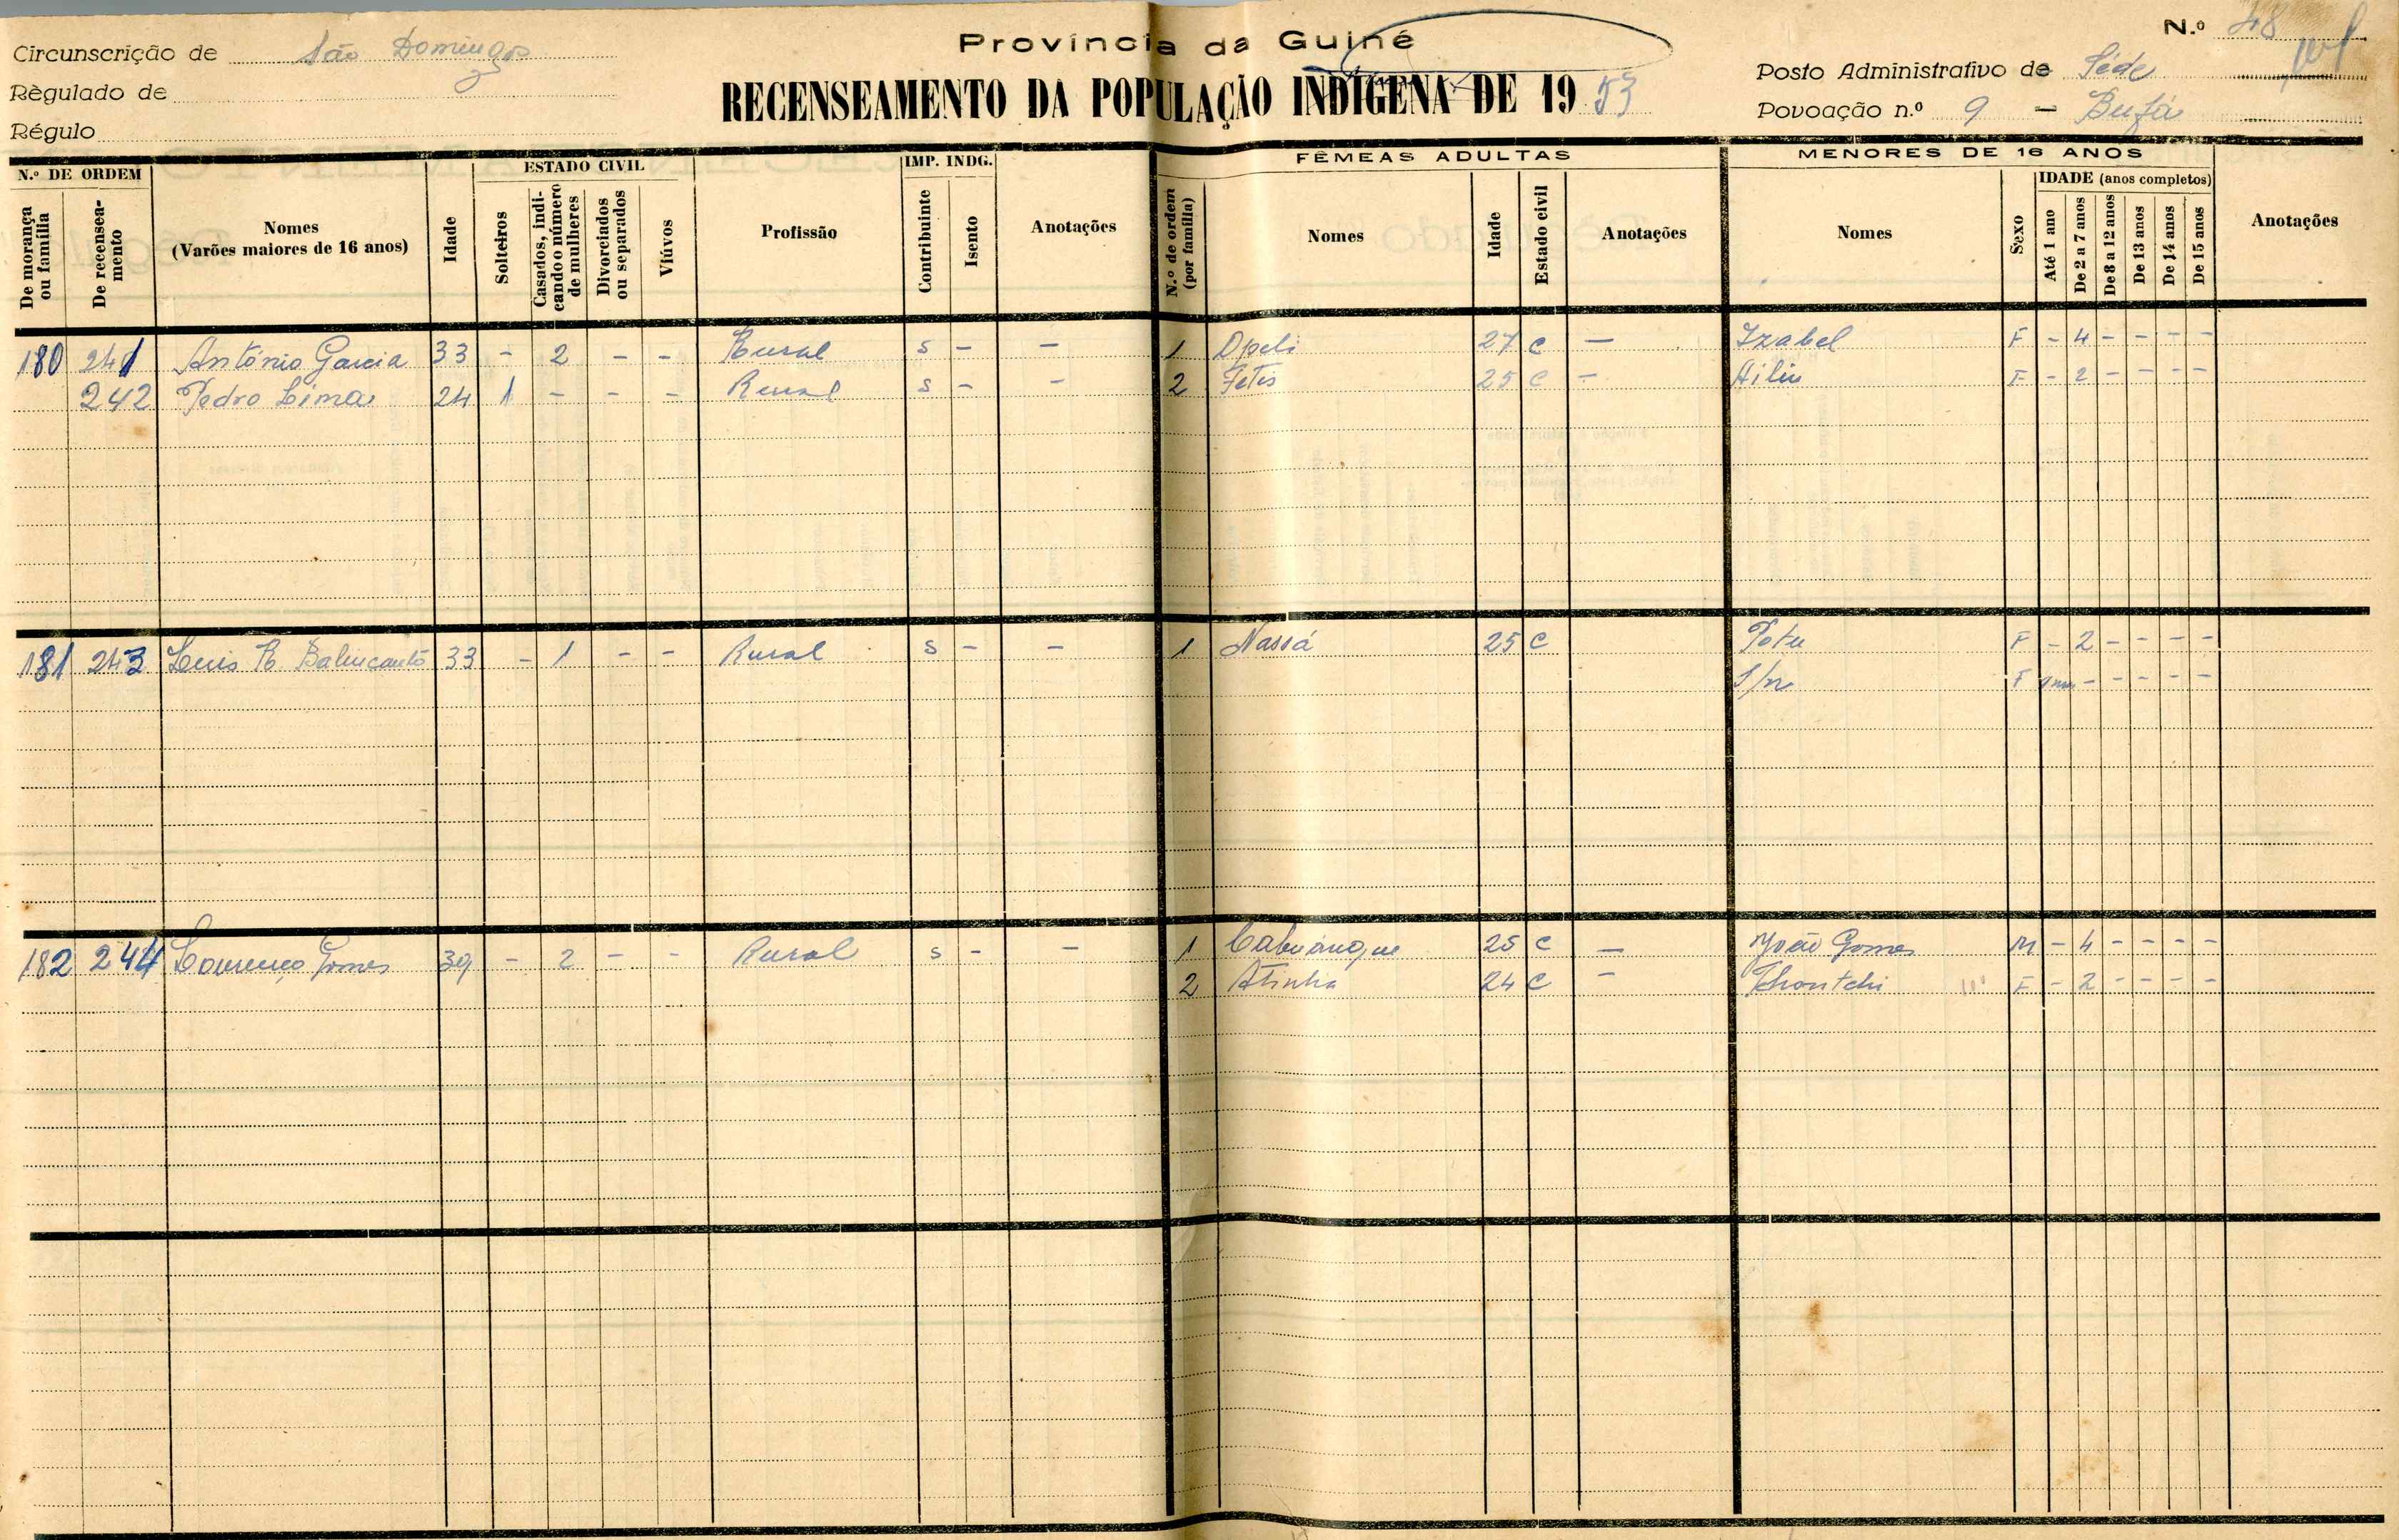 Província da Guiné
N.º 48
Circunscrição de São Domingos
RECENSEAMENTO DA POPULAÇÃO INDÍGENA DE 1953
Posto Administrativo de Séde
Règulado de
Povoação n.º 9 —
Régulo
N.º DE ORDEM
De morança ou família
De recenseamento
Nomes (Varões maiores de 16 anos)
Idade
ESTADO CIVIL
Solteiros
Casados, indicando o número de mulheres
Divorciados ou separados
Viúvos
Profissão
IMP. INDG.
Contribuinte
Isento
Anotações
FÊMEAS ADULTAS
N.º de ordem (por família)
Nomes
Idade
Estado civil
Anotações
MENORES DE 16 ANOS
Nomes
Sexo
IDADE (anos completos)
Até 1 ano
De 2 a 7 anos
De 8 a 12 anos
De 13 anos
De 14 anos
De 15 anos
Anotações
180 241 António Garcia 33 - 2 - - Rural s - - 1 Opeli 27 c — Izabel F - 4 - - - -
242 Pedro Lima 24 1 - - - Rural s - - 2 25 c - F - 2 - - - -
181 243 Luis R. 33 - 1 - - Rural s - - 1 Nassá 25 c F - 2 - - - -
S/n F - - - - -
182 244 Lourenço Gomes 39 - 2 - - Rural s - - 1 25 c — João Gomes M - 4 - - - -
2 Atinha 24 c - Thontchi F - 2 - - - -